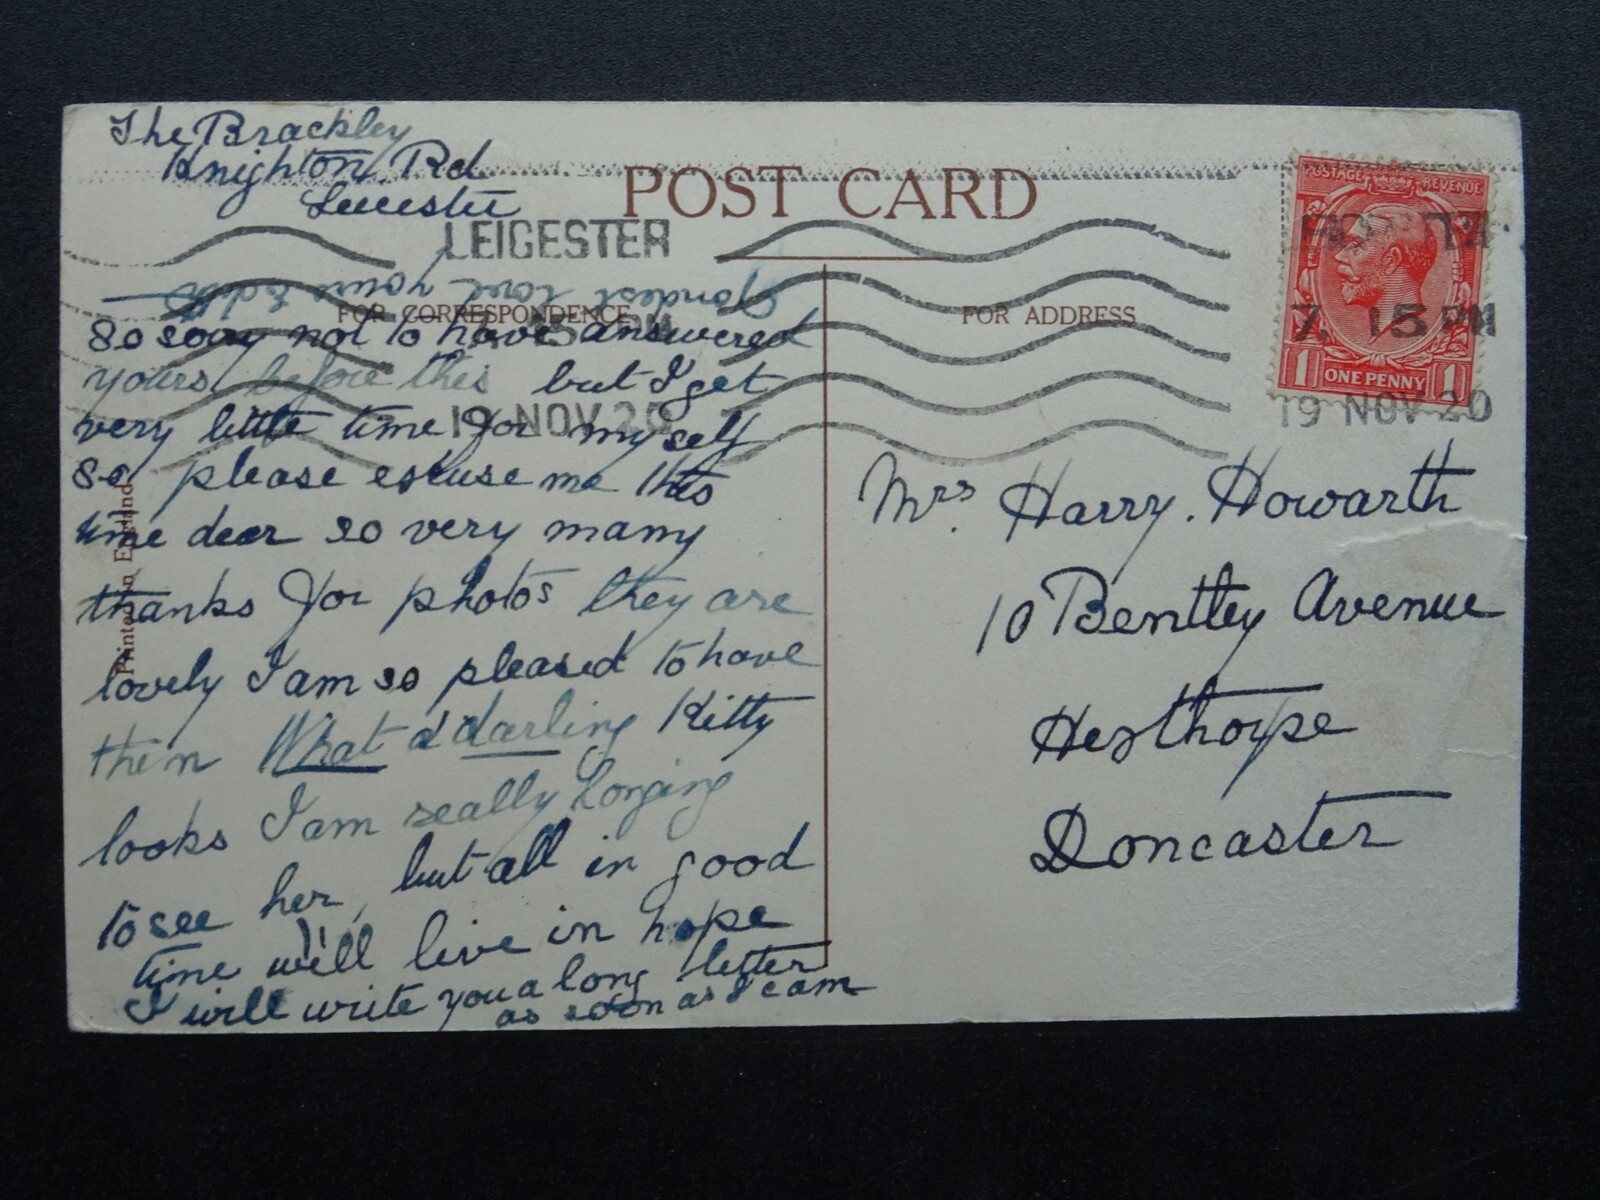 The Brackley
Knighton Rd
Leicester
POST CARD
LEICESTER
7. 15 PM
19 NOV 20
FOR CORRESPONDENCE
Fondest love yours
So sorry not to have answered
yours before this but I get
very little time for myself
so please excuse me this
time dear so very many
thanks for photos they are
lovely I am so pleased to have
them What a darling Kitty
looks I am really longing
to see her, but all in good
time will live in hope
I will write you a long letter
as soon as I can
Printed in England
FOR ADDRESS
POSTAGE REVENUE
LEICESTER
7. 15 PM
19 NOV 20
1 ONE PENNY 1
Mrs Harry. Howarth
10 Bentley Avenue
Hexthorpe
Doncaster